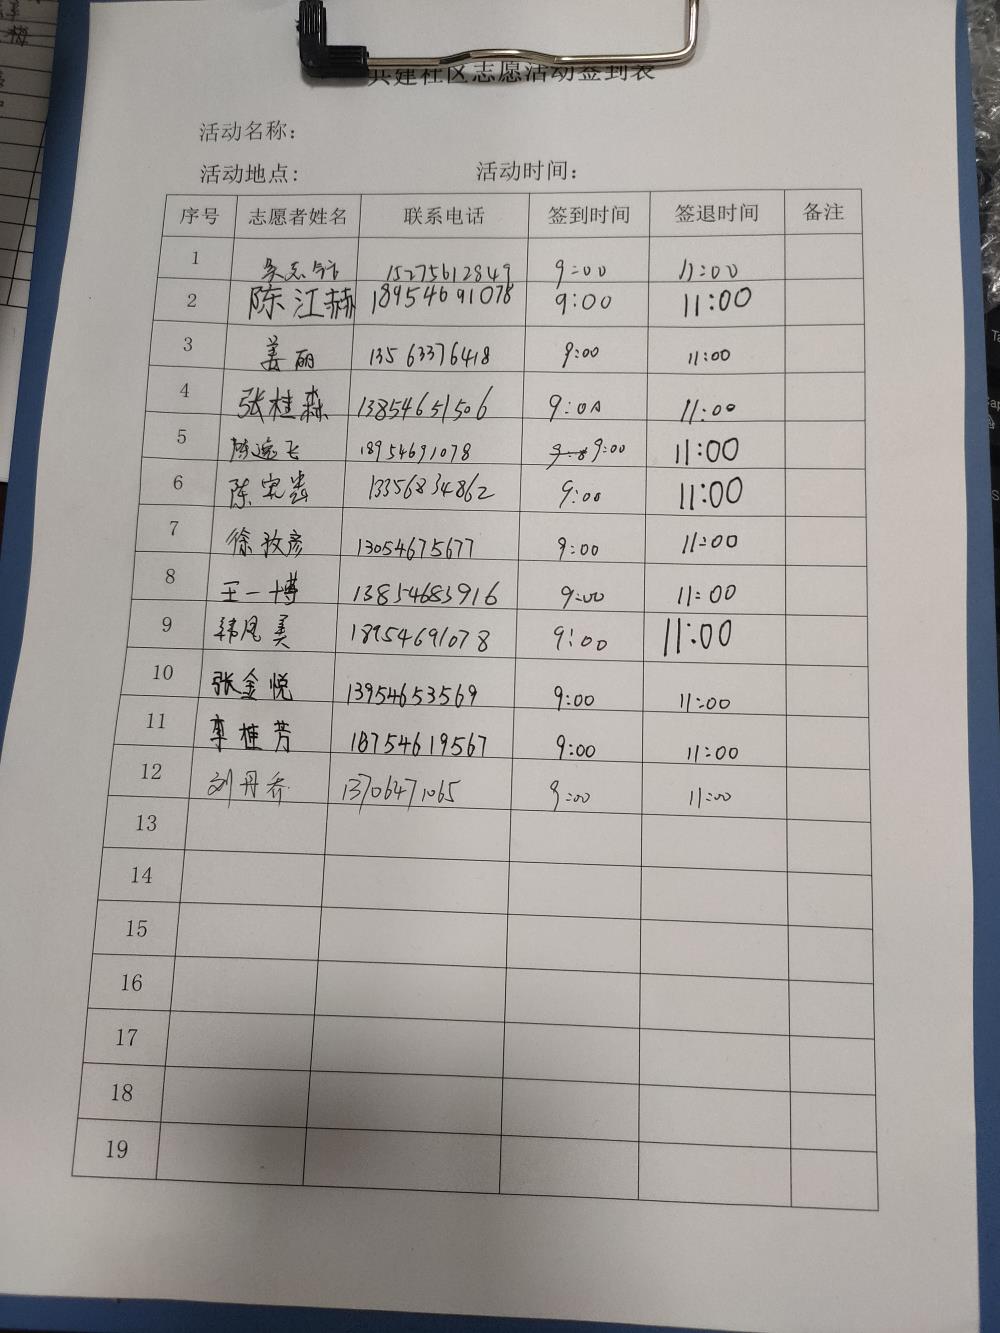 共建社区志愿活动签到表
活动名称：
活动地点： 活动时间：
序号 志愿者姓名 联系电话 签到时间 签退时间 备注
1 15275612849 9:00 11:00
2 陈江赫 18954691078 9:00 11:00
3 姜丽 13563376418 9:00 11:00
4 张桂森 13854651506 9:00 11:00
5 陈逸飞 18954691078 9:00 11:00
6 陈 13356834862 9:00 11:00
7 徐玫彦 13054675677 9:00 11:00
8 王一博 13854683916 9:00 11:00
9 韩凤美 18954691078 9:00 11:00
10 张金悦 13954653569 9:00 11:00
11 李桂芳 18754619567 9:00 11:00
12 刘丹乔 13706471065 9:00 11:00
13
14
15
16
17
18
19